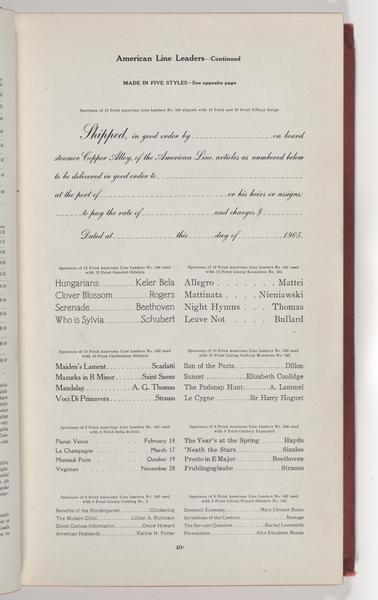 American Line Leaders—Continued
MADE IN FIVE STYLES—See opposite page
Specimen of 12 Point American Line Leaders No. 540 aligned with 18 Point and 30 Point Tiffany Script
Shipped, in good order by on board
steamer Copper Alloy, of the American Line, articles as numbered below
to be delivered in good order to
at the port of or his heirs or assigns;
to pay the rate of and charges $
Dated at this day of 1905.
Specimen of 12 Point American Line Leaders No. 544 used
with 12 Point Oldstyle
Hungarians Keler Bela
Clover Blossom Rogers
Serenade Beethoven
Who is Sylvia Schubert
Specimen of 12 Point American Line Leaders No. 541 used
with 12 Point Lining
Allegro . . . . . . . Mattei
Mattinata . . . . Nieniawski
Night Hymns . . . Thomas
Leave Not . . . . Bullard
Specimen of 10 Point American Line Leaders No. 542 used
with 10 Point Cheltenham Oldstyle
Maiden's Lament Scarlatti
Mazurka in B Minor Saint Saens
Mandalay A. G. Thomas
Voci Di Primavera Strauss
Specimen of 10 Point American Line Leaders No. 540 used
with 10 Point Lining Cushing Monotone No. 553
Sun of the Purta Dillon
Sunset Elizabeth Coolidge
The Podsnap Hunt A. Lammel
Le Cygne Sir Harry Hoguet
Specimen of 8 Point American Line Leaders No. 541 used
with 8 Point
Planet Venus February 14
La Champagne March 17
Montauk Point October 19
Virginian November 28
Specimen of 8 Point American Line Leaders No. 544 used
with 8 Point Century Expanded
The Year's at the Spring Haydn
'Neath the Stars Sinzlee
Presto in E Major Beethoven
Fruhlingsglaube Strauss
Specimen of 6 Point American Line Leaders No. 542 used
with 6 Point Lining
Benefits of the Kindergarten Chickering
The Modern Child Lillian A. Robinson
Some Curious Information Grace Howard
American Husbands Kathie H. Porter
Specimen of 6 Point American Line Leaders No. 542 used
with 6 Point Lining French Oldstyle No. 552
Domestic Economy Mary Ottman Banta
Inventions of the Century Ramage
The Servant Question Rachel Lowentritt
Permutation Alice Elizabeth Moran
40c